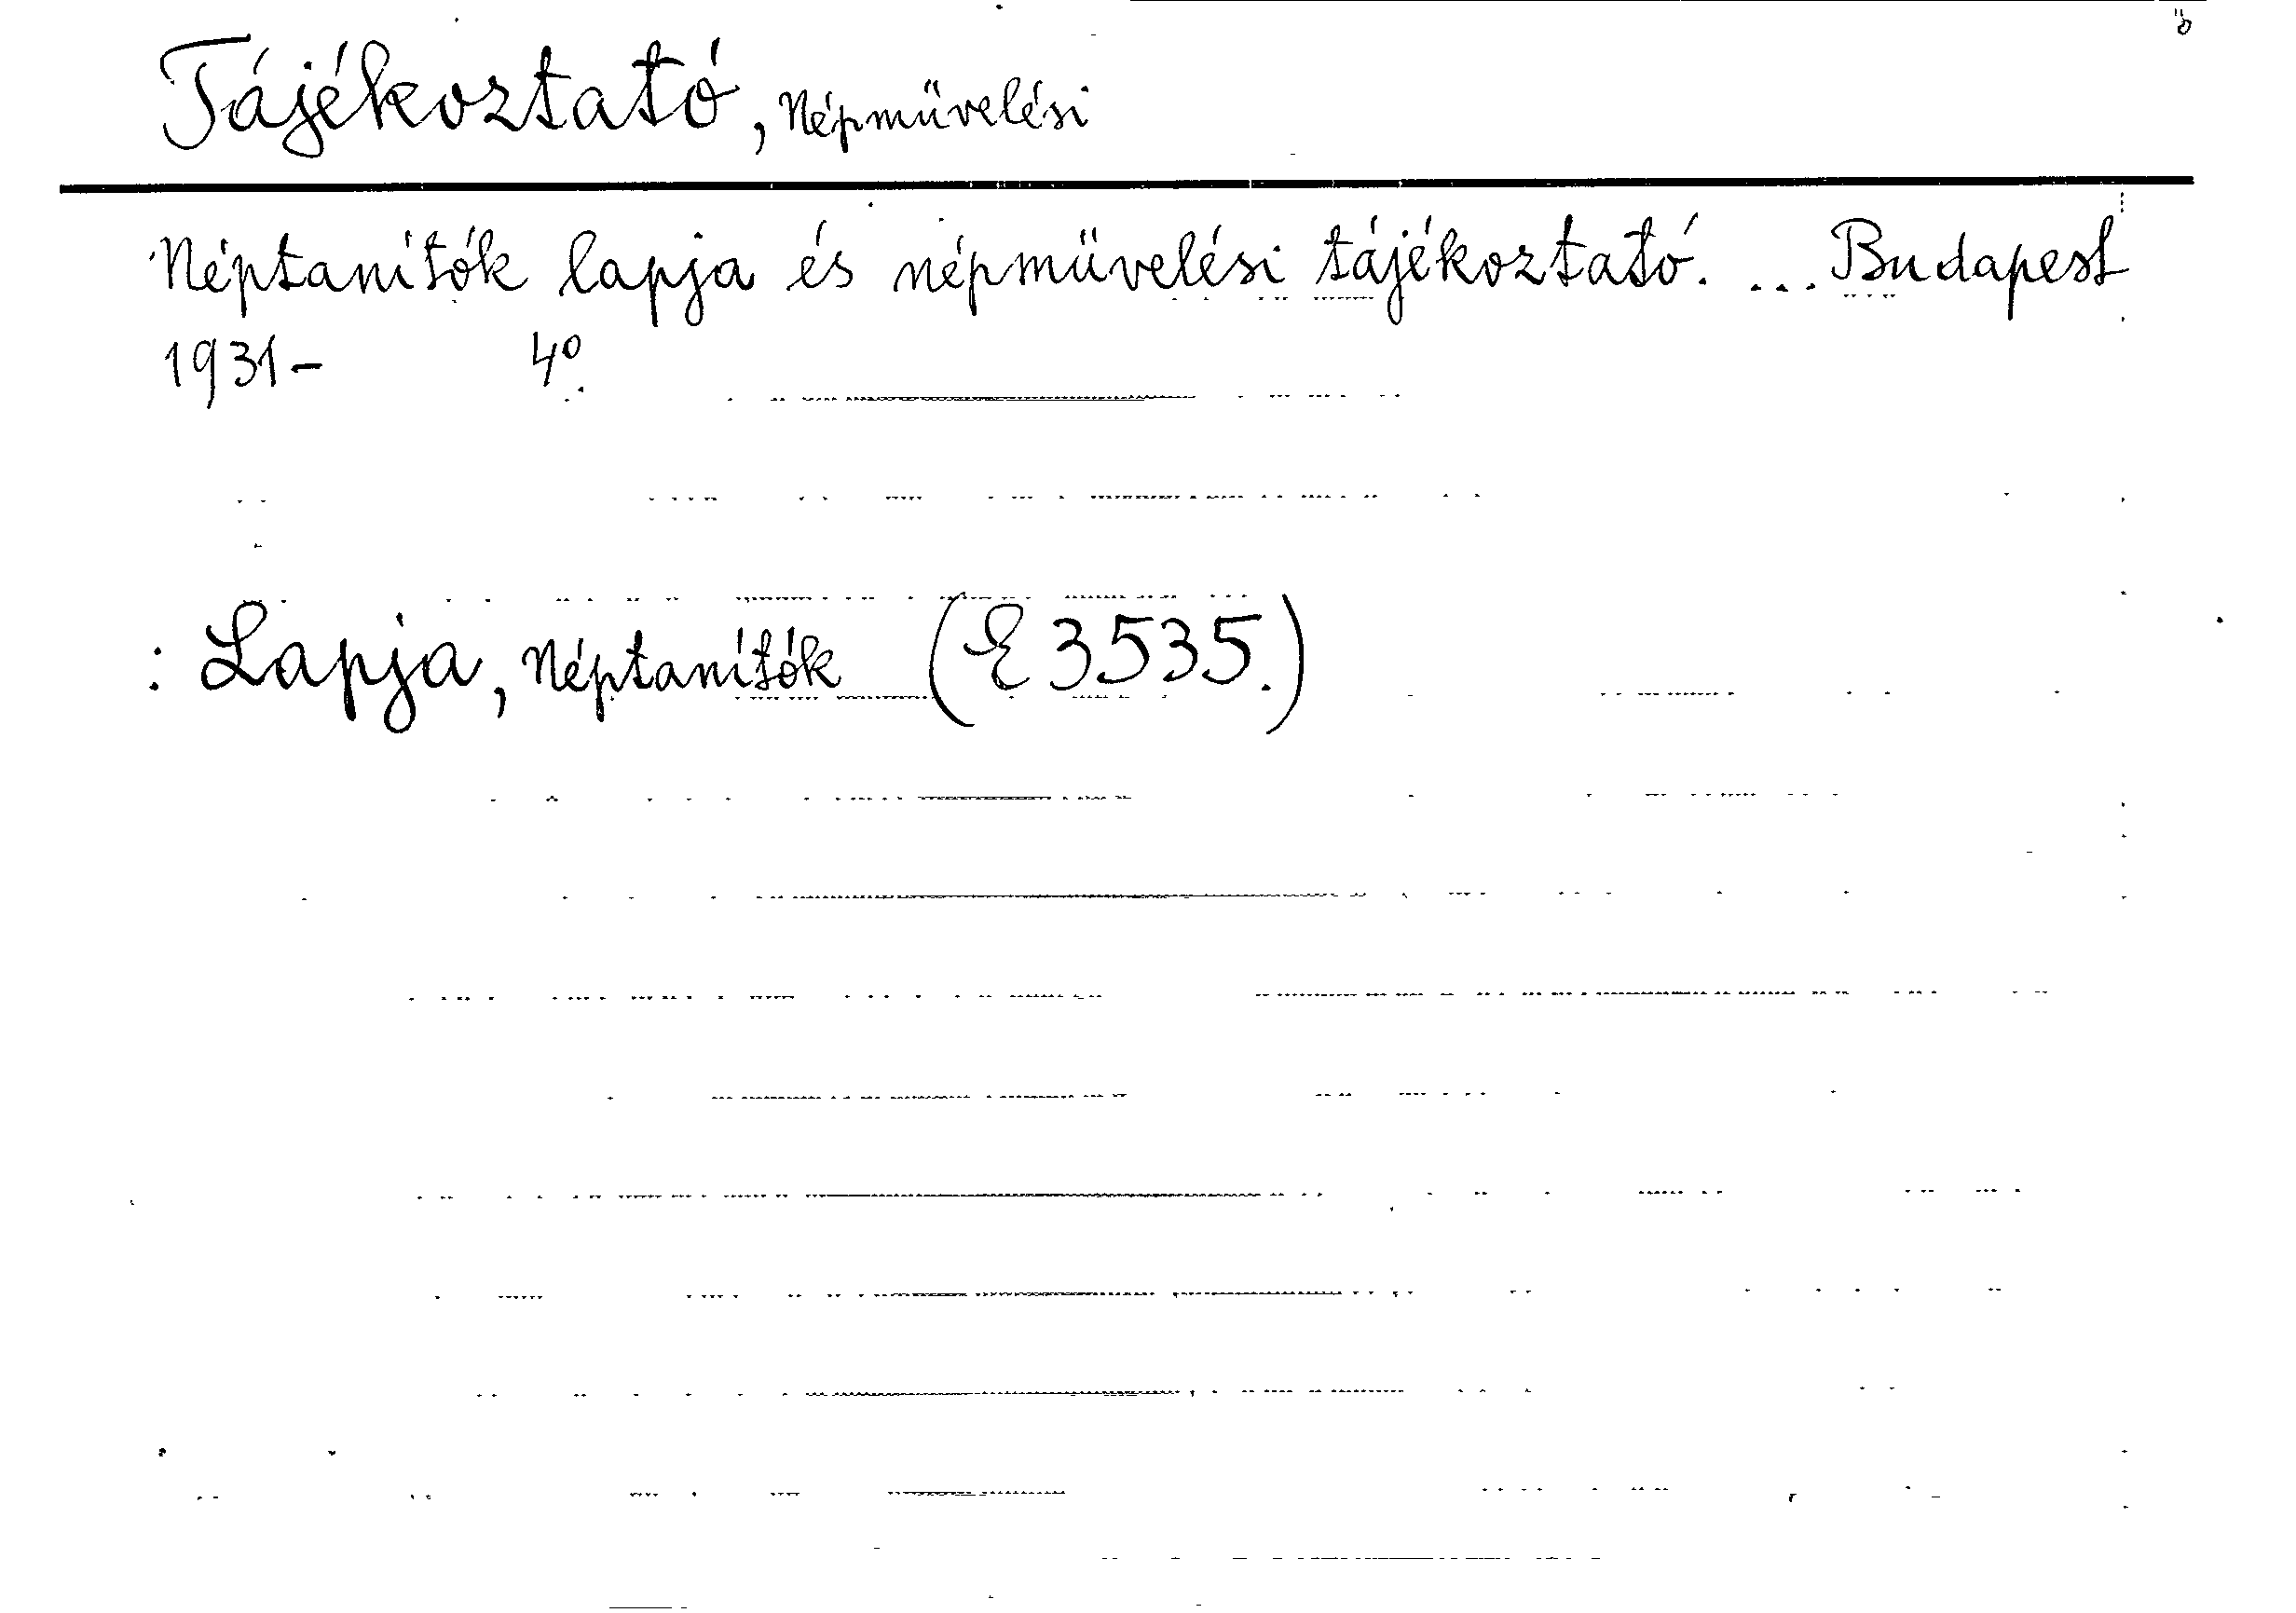 Tájékoztató, Népművelési
Néptanítók lapja és népművelési tájékoztató. ... Budapest
1931- 4º
: Lapja, Néptanítók (E 3535.)